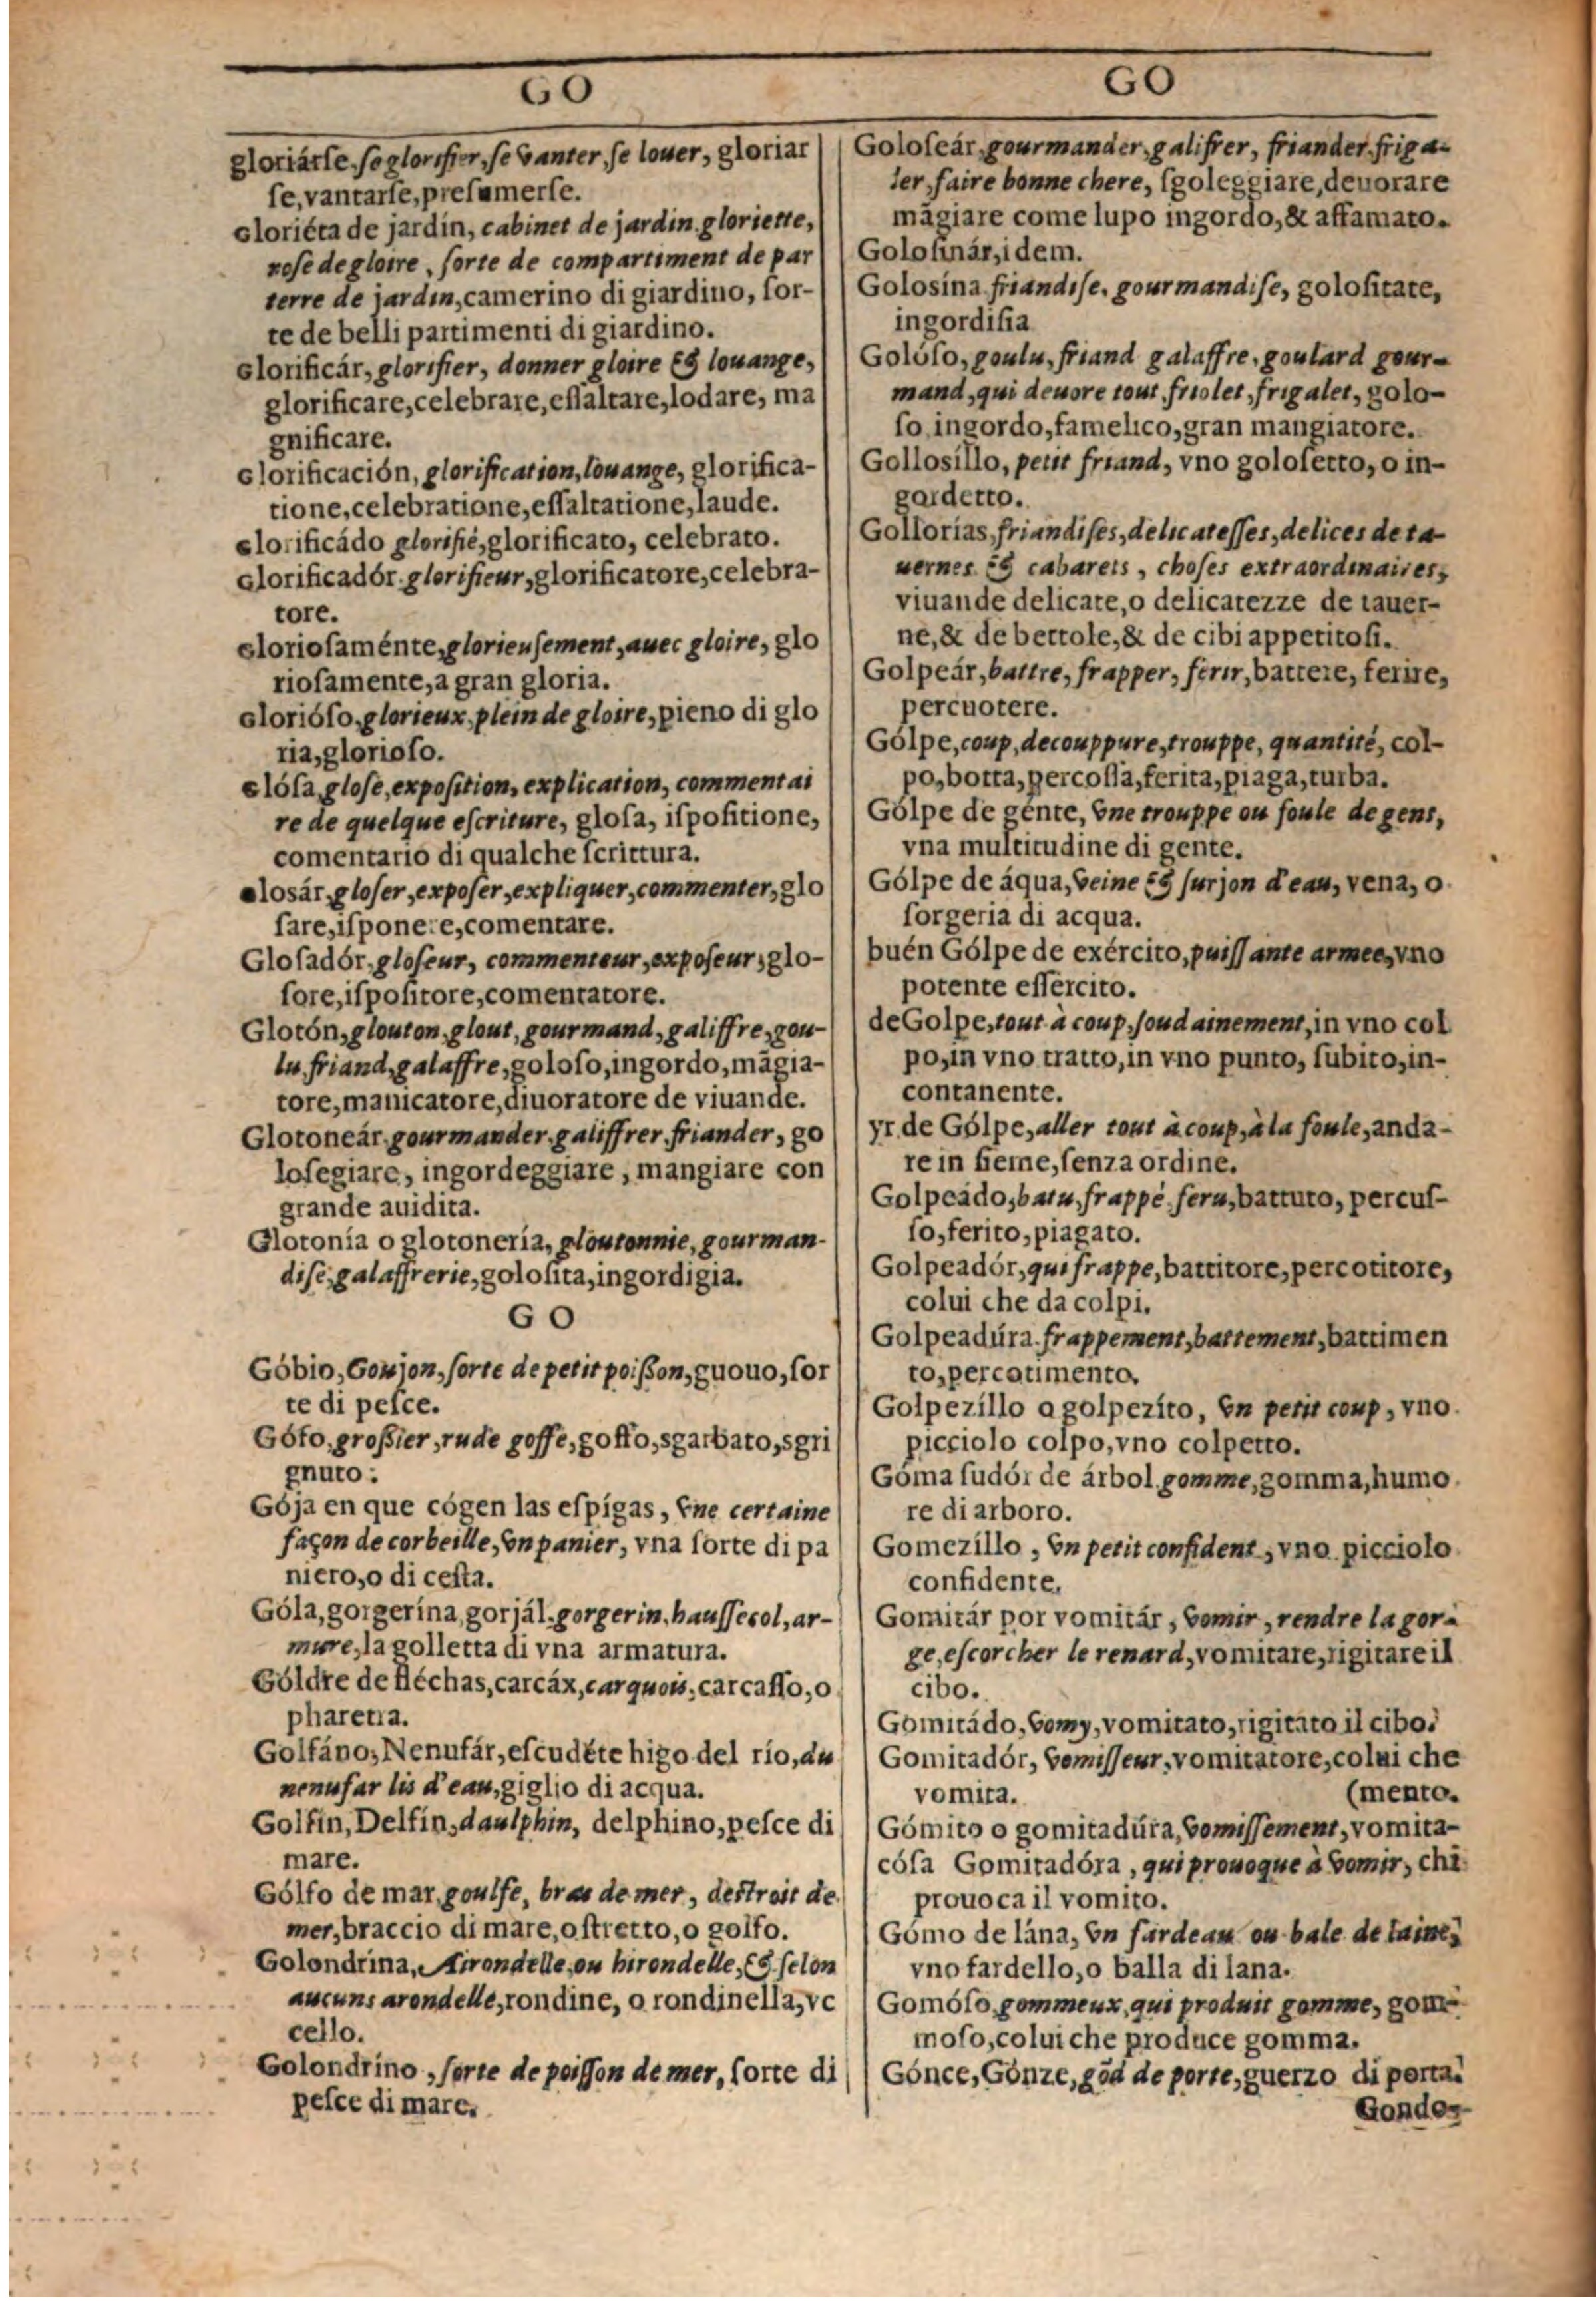 GO
gloriárſe, ſe glorifier, ſe vanter, ſe louer, gloriar
ſe, vantarſe, preſumerſe.
Gloriéta de jardín, cabinet de jardin, gloriette,
roſe de gloire, ſorte de compartiment de par
terre de jardin, camerino di giardino, ſor-
te de belli partimenti di giardino.
Glorificár, glorifier, donner gloire & louange,
glorificare, celebrare, eſſaltare, lodare, ma
gnificare.
Glorificación, glorification, louange, glorifica-
tione, celebratione, eſſaltatione, laude.
Glorificádo glorifié, glorificato, celebrato.
Glorificadór, glorifieur, glorificatore, celebra-
tore.
Glorioſaménte, glorieuſement, auec gloire, glo
rioſamente, a gran gloria.
Glorióſo, glorieux, plein de gloire, pieno di glo
ria, glorioſo.
Glóſa, gloſe, expoſition, explication, commentai
re de quelque eſcriture, gloſa, iſpoſitione,
comentario di qualche ſcrittura.
Glosár, gloſer, expoſer, expliquer, commenter, glo
ſare, iſponere, comentare.
Gloſadór, gloſeur, commenteur, expoſeur, glo-
ſore, iſpoſitore, comentatore.
Glotón, glouton, glout, gourmand, galiffre, gou-
lu, friand, galaffre, goloſo, ingordo, mãgia-
tore, manicatore, diuoratore de viuande.
Glotoneár, gourmander, galiffrer, friander, go
loſegiare, ingordeggiare, mangiare con
grande auidita.
Glotonía o glotonería, gloutonnie, gourman-
diſe, galaffrerie, goloſita, ingordigia.
G O
Góbio, Goujon, ſorte de petit poiſſon, guouo, ſor
te di peſce.
Gófo, groſſier, rude goffe, goffo, sgarbato, sgri
gnuto:
Gója en que cógen las eſpígas, vne certaine
façon de corbeille, vn panier, vna ſorte di pa
niero, o di ceſta.
Góla, gorgerína, gorjál, gorgerin, hauſſecol, ar-
mure, la golletta di vna armatura.
Góldre de fléchas, carcáx, carquois, carcaſſo, o
pharetra.
Golfáno, Nenufár, eſcudéte higo del río, du
nenufar lis d'eau, giglio di acqua.
Golfín, Delfín, daulphin, delphino, peſce di
mare.
Gólfo de mar, goulfe, bras de mer, deſtroit de
mer, braccio di mare, o ſtretto, o golfo.
Golondrína, Airondelle, ou hirondelle, & ſelon
aucuns arondelle, rondine, o rondinella, vc
cello.
Golondríno, ſorte de poiſſon de mer, ſorte di
peſce di mare.
GO
Goloſeár, gourmander, galifrer, friander, friga-
ler, faire bonne chere, ſgoleggiare, deuorare
mãgiare come lupo ingordo, & affamato.
Goloſinár, idem.
Golosína friandiſe, gourmandiſe, goloſitate,
ingordiſia
Golóſo, goulu, friand galaffre, goulard gour-
mand, qui deuore tout, friolet, frigalet, golo-
ſo, ingordo, famelico, gran mangiatore.
Gollosíllo, petit friand, vno goloſetto, o in-
gordetto.
Gollorías, friandiſes, delicateſſes, delices de ta-
uernes & cabarets, choſes extraordinaires,
viuande delicate, o delicatezze de tauer-
ne, & de bettole, & de cibi appetitoſi.
Golpeár, battre, frapper, ferir, battere, ferire,
percuotere.
Gólpe, coup, decouppure, trouppe, quantité, col-
po, botta, percoſſa, ferita, piaga, turba.
Gólpe de génte, vne trouppe ou foule de gens,
vna multitudine di gente.
Gólpe de áqua, veine & ſurjon d'eau, vena, o
ſorgeria di acqua.
buén Gólpe de exército, puiſſante armee, vno
potente eſſercito.
de Golpe, tout à coup, ſoudainement, in vno col
po, in vno tratto, in vno punto, ſubito, in-
contanente.
yr de Gólpe, aller tout à coup, à la foule, anda-
re in ſieme, ſenza ordine.
Golpeádo, batu, frappé, feru, battuto, percuſ-
ſo, ferito, piagato.
Golpeadór, qui frappe, battitore, percotitore,
colui che da colpi.
Golpeadúra, frappement, battement, battimen
to, percotimento,
Golpezíllo o golpezíto, vn petit coup, vno
picciolo colpo, vno colpetto.
Góma ſudór de árbol, gomme, gomma, humo
re di arboro.
Gomezíllo, vn petit confident, vno picciolo
confidente.
Gomitár por vomitár, vomir, rendre la gor-
ge, eſcorcher le renard, vomitare, rigitare il
cibo.
Gomitádo, vomy, vomitato, rigitato il cibo.
Gomitadór, vomiſſeur, vomitatore, colui che
vomita. (mento.
Gómito o gomitadúra, vomiſſement, vomita-
cóſa Gomitadóra, qui prouoque à vomir, chi
prouoca il vomito.
Gómo de lána, vn fardeau ou bale de laine,
vno fardello, o balla di lana.
Gomóſo, gommeux, qui produit gomme, gom-
moſo, colui che produce gomma.
Gónce, Gónze, gõd de porte, guerzo di porta.
Gondo-